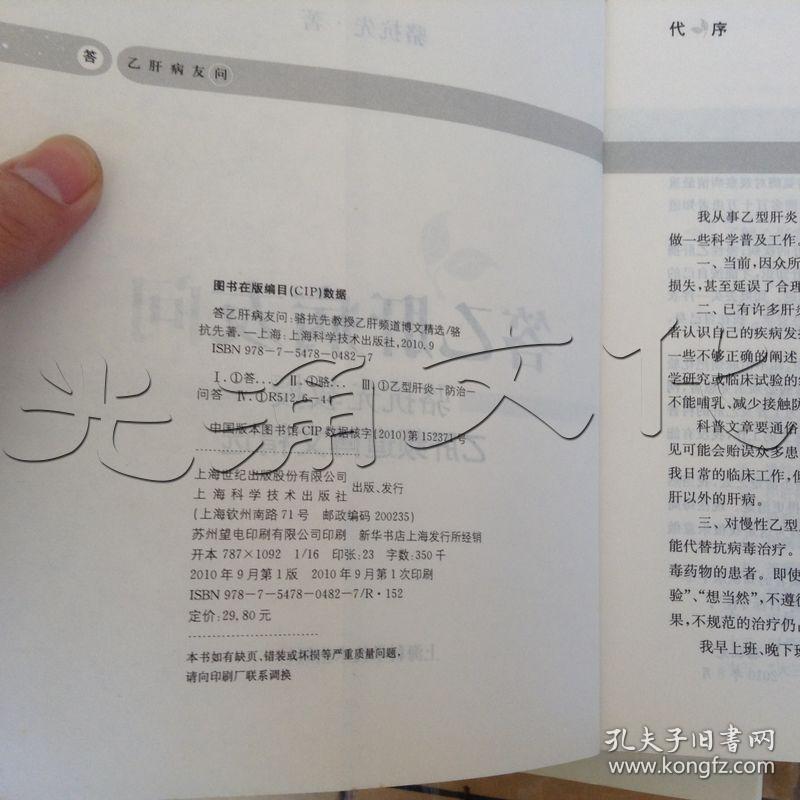 答 乙肝病友问
图书在版编目(CIP)数据
答乙肝病友问:骆抗先教授乙肝频道博文精选/骆
抗先著.—上海:上海科学技术出版社,2010.9
ISBN 978-7-5478-0482-7
Ⅰ.①答… Ⅱ.①骆… Ⅲ.①乙型肝炎—防治—
问答 Ⅳ.①R512.6-44
中国版本图书馆CIP数据核字(2010)第152371号
上海世纪出版股份有限公司
上海科学技术出版社 出版、发行
(上海钦州南路71号 邮政编码200235)
苏州望电印刷有限公司印刷 新华书店上海发行所经销
开本 787×1092 1/16 印张:23 字数:350千
2010年9月第1版 2010年9月第1次印刷
ISBN 978-7-5478-0482-7/R·152
定价:29.80元
本书如有缺页、错装或坏损等严重质量问题,
请向印刷厂联系调换
代序
我从事乙型肝炎
做一些科学普及工作。
一、当前,因众所
损失,甚至延误了合理
二、已有许多肝炎
者认识自己的疾病发
一些不够正确的阐述
学研究或临床试验的
不能哺乳、减少接触防
科普文章要通俗
见可能会贻误众多患
我日常的临床工作,但
肝以外的肝病。
三、对慢性乙型
能代替抗病毒治疗。
毒药物的患者。即使
验”、“想当然”,不遵
果,不规范的治疗仍
我早上班、晚下班
光角文化
孔夫子旧书网
www.kongfz.com